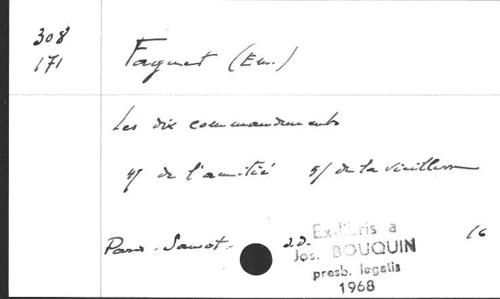 308
171
Faguet (Em.)
Les dix commandements
4/ de l'amitié 5/ de la vieillesse
Paris - Sansot - s.d. 16
Ex-libris a
Jos. BOUQUIN
presb. legatis
1968